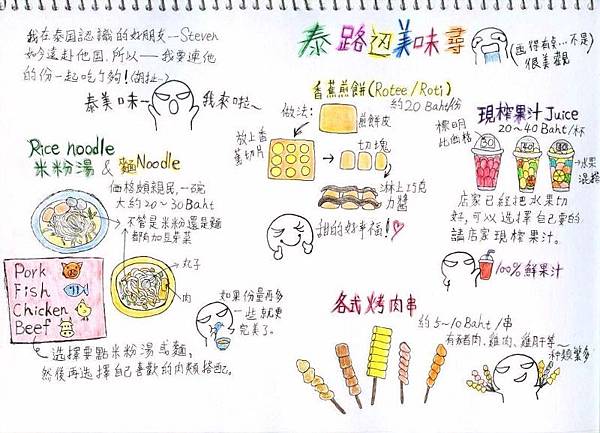 我在泰國認識的好朋友--Steven
如今遠赴他國，所以—我要連他
的份一起吃ㄅ夠！(胡扯~)
泰美味~
我來啦~
泰路邊美味尋
(画得有夠...不是)
很美觀
香蕉煎餅(Rotee / Roti)
約20 Baht/份
做法:
煎餅皮
放上香
蕉切片
切塊
淋上巧克
力醬
甜的好幸福!
現榨果汁 Juice
20~40 Baht/杯
標明
比価格
30
40
20
水果
混搭
店家已經把水果切
好,可以選擇自己要的
請店家現榨果汁。
100%鮮果汁
Rice noodle
米粉湯 & 麵Noodle
価格頗親民,一碗
大約20~30Baht
不管是米粉還是麵
都有加豆芽菜
丸子
肉
Pork
Fish
Chicken
Beef
如果份量再多
一些就更
完美了。
選擇要點米粉湯或麵,
然後再選擇自己喜歡的肉類搭配。
各式烤肉串
約5~10Baht/串
有豬肉、雞肉、雞肝等~
種類繁多